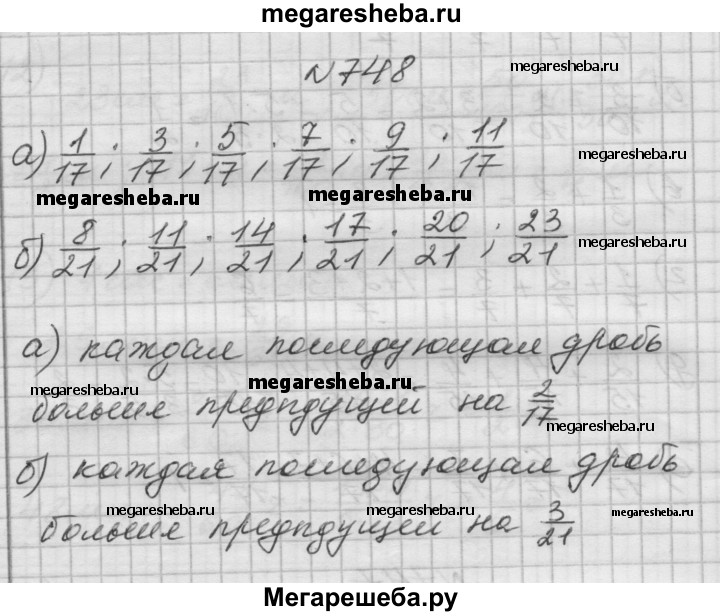 megaresheba.ru
№748
megaresheba.ru
а) 1/17; 3/17; 5/17; 7/17; 9/17; 11/17
megaresheba.ru megaresheba.ru megaresheba.ru
б) 8/21; 11/21; 14/21; 17/21; 20/21; 23/21
megaresheba.ru
а) каждая последующая дробь
megaresheba.ru megaresheba.ru
больше предыдущей на 2/17
megaresheba.ru
б) каждая последующая дробь
больше предыдущей на 3/21
megaresheba.ru megaresheba.ru megaresheba.ru
Мегарешеба.ру